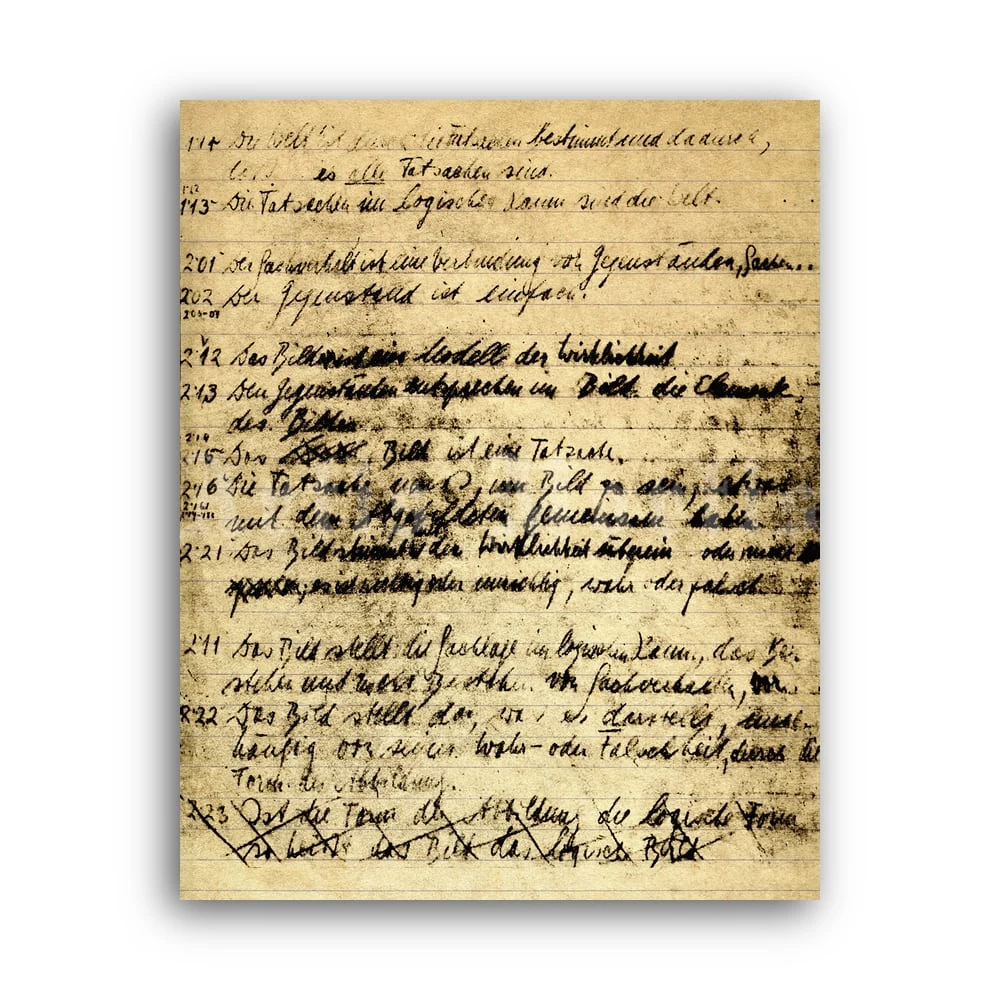 1'11 Die Welt ist durch die Tatsachen bestimmt und dadurch,
es alle Tatsachen sind.
1'12
1'13 Die Tatsachen im logischen Raum sind die Welt.
2'01 Der Sachverhalt ist eine Verbindung von Gegenständen, Sachen..
2'02 Der Gegenstand ist einfach.
2'12 Das Bild ist ein Modell der Wirklichkeit
2'13 Den Gegenständen entsprechen im Bild die Elemente
des Bildes
2'14
2'15 Das Bild ist eine Tatsache.
2'16 Die Tatsache muss, um Bild zu sein, etwas
mit dem Abgebildeten gemeinsam haben
2'21 Das Bild stimmt mit der Wirklichkeit überein oder nicht
es ist richtig oder unrichtig, wahr oder falsch.
2'11 Das Bild stellt die Sachlage im logischen Raum, das Be-
stehen und Bestehen von Sachverhalten,
2'22 Das Bild stellt dar, was es darstellt, unab-
hängig von seiner Wahr- oder Falschheit, durch die
Form der Abbildung.
2'23 Ist die Form der Abbildung die logische Form
so heisst das Bild das logische Bild